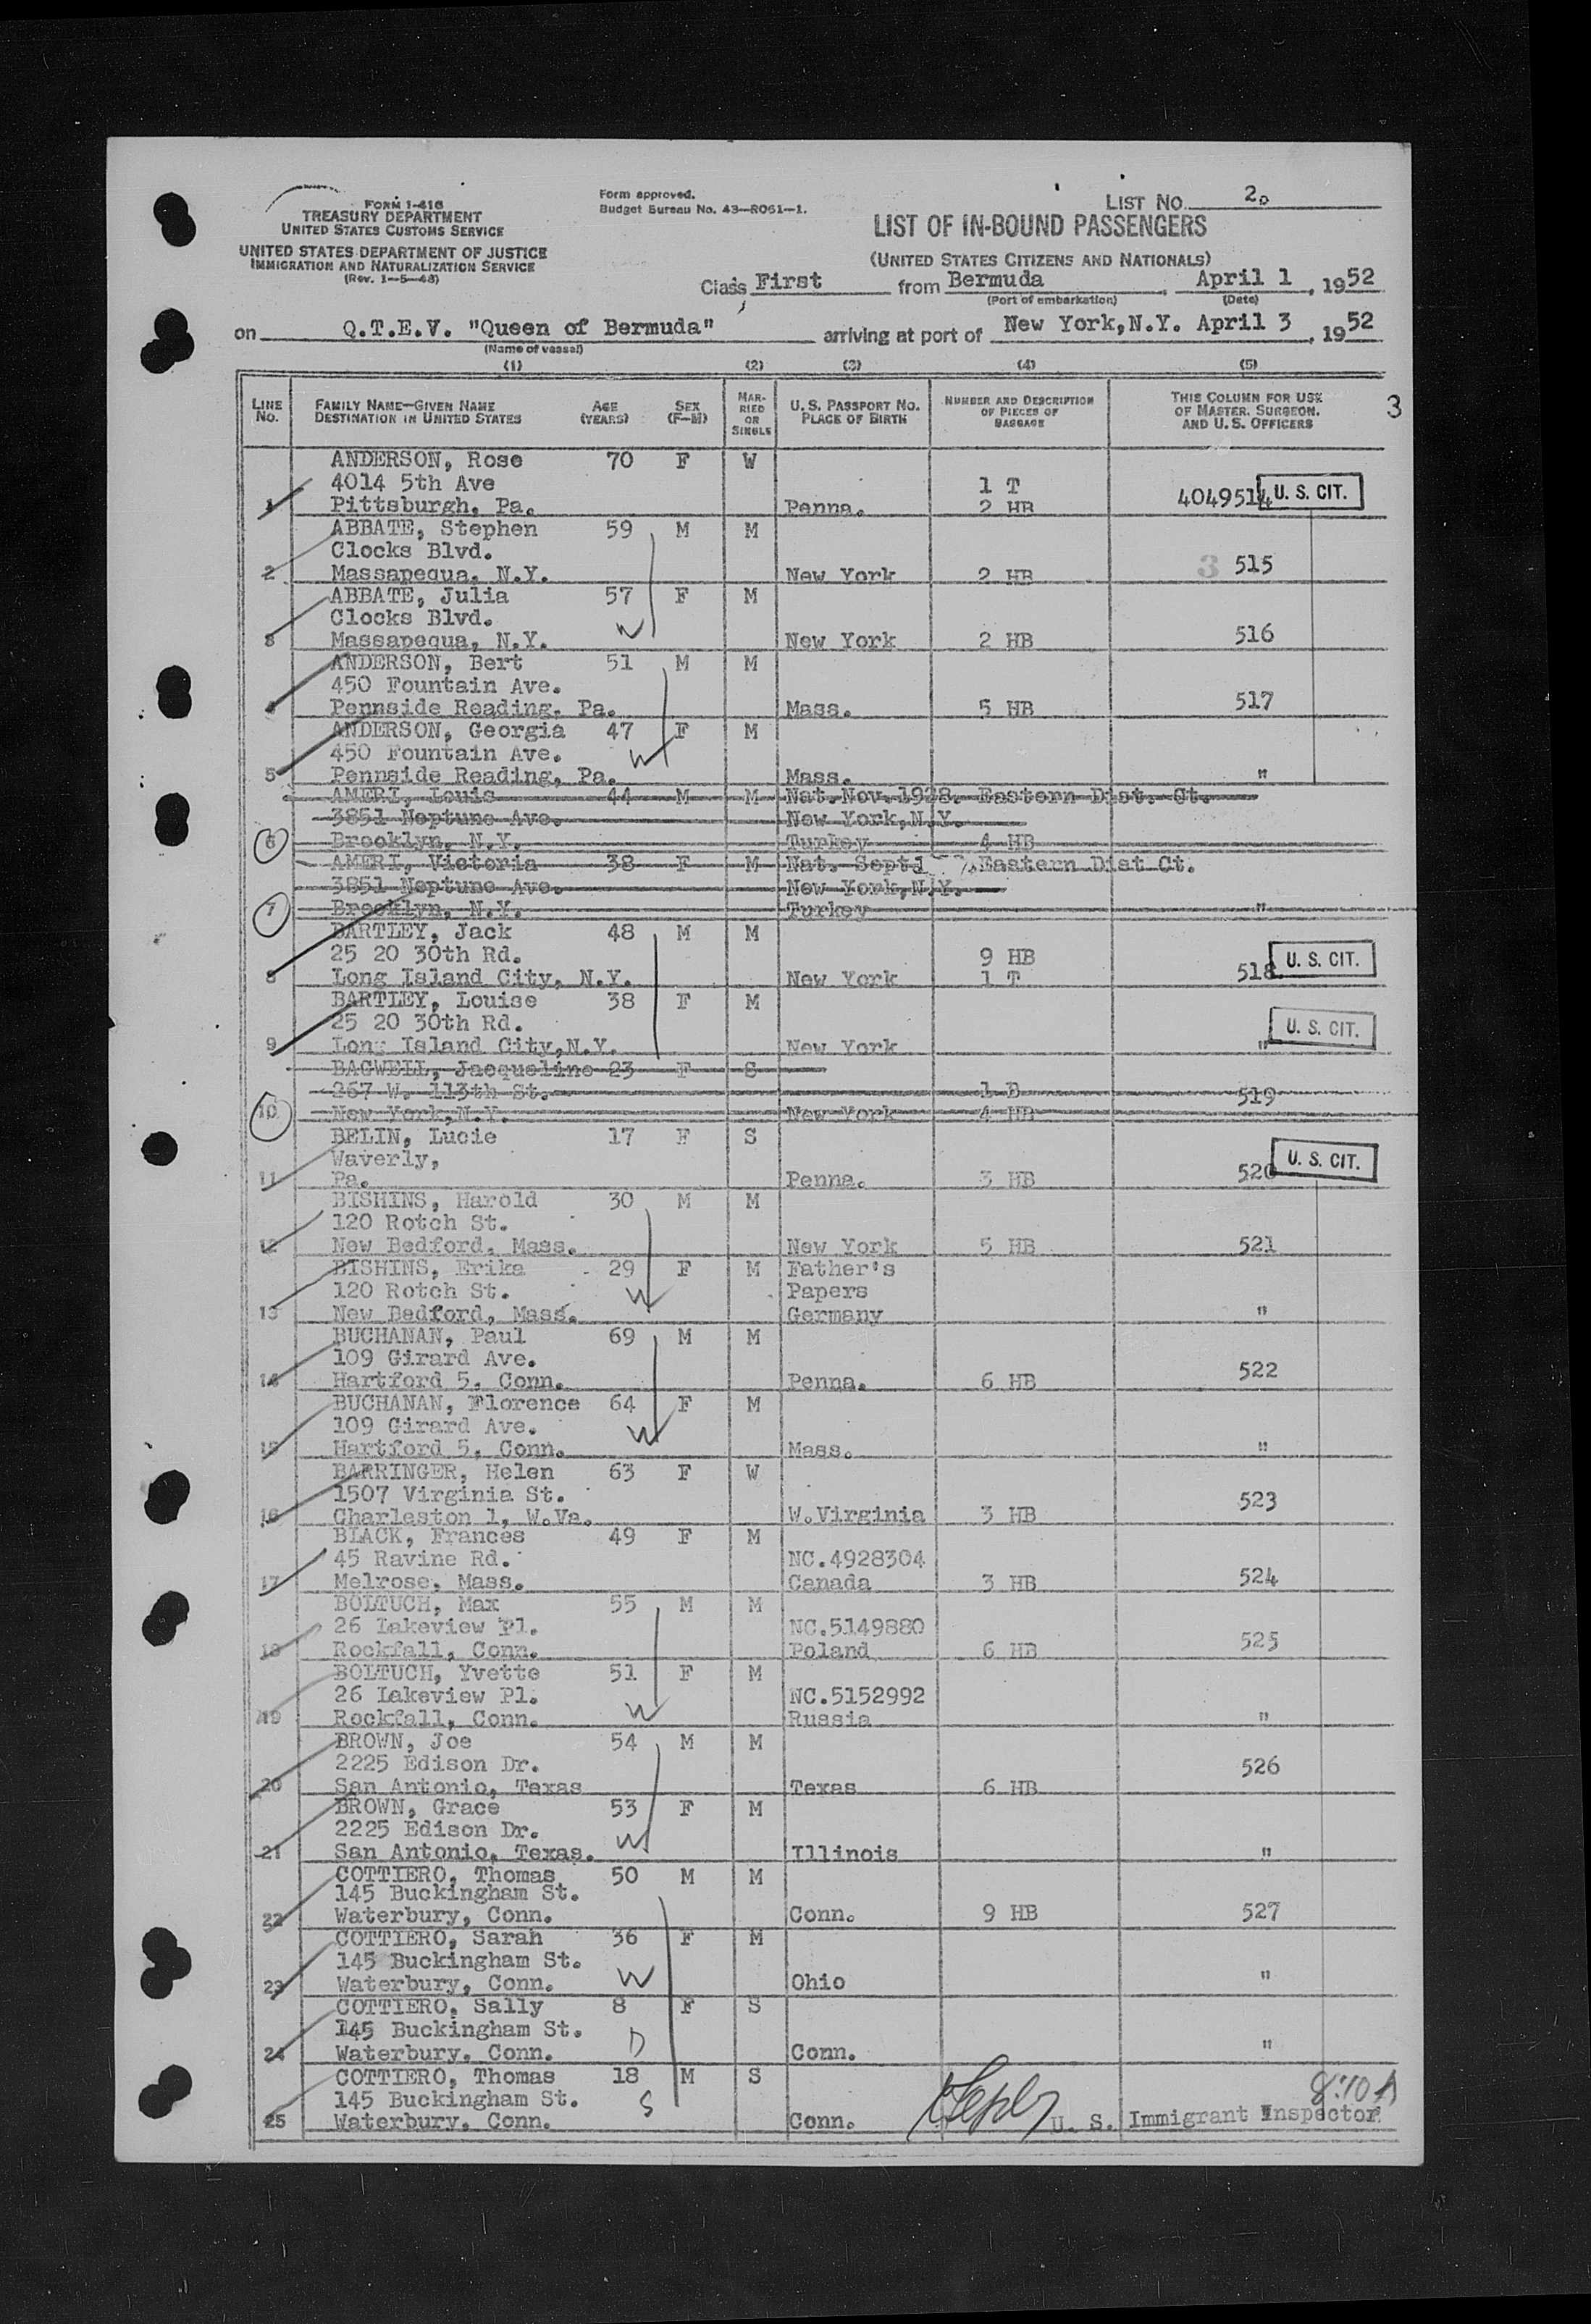 FORM I-416
TREASURY DEPARTMENT
UNITED STATES CUSTOMS SERVICE
UNITED STATES DEPARTMENT OF JUSTICE
IMMIGRATION AND NATURALIZATION SERVICE
(Rev. 1-5-48)
Form approved.
Budget Bureau No. 43-R061-1.
LIST NO. 2.
LIST OF IN-BOUND PASSENGERS
(UNITED STATES CITIZENS AND NATIONALS)
Class First from Bermuda, April 1, 1952
(Port of embarkation) (Date)
on Q.T.E.V. "Queen of Bermuda" arriving at port of New York, N.Y. April 3, 1952
(Name of vessel)
(1) (2) (3) (4) (5)
LINE NO. FAMILY NAME—GIVEN NAME DESTINATION IN UNITED STATES AGE (YEARS) SEX (F-M) MARRIED OR SINGLE U.S. PASSPORT NO. PLACE OF BIRTH NUMBER AND DESCRIPTION OF PIECES OF BAGGAGE THIS COLUMN FOR USE OF MASTER, SURGEON, AND U.S. OFFICERS 3
ANDERSON, Rose 70 F W
4014 5th Ave 1 T
1 Pittsburgh, Pa. Penna. 2 HB 4049514 U. S. CIT.
ABBATE, Stephen 59 M M
Clocks Blvd. 3 515
2 Massapequa, N.Y. New York 2 HB
ABBATE, Julia 57 F M
Clocks Blvd. W
3 Massapequa, N.Y. New York 2 HB 516
ANDERSON, Bert 51 M M
450 Fountain Ave.
4 Pennside Reading, Pa. Mass. 5 HB 517
ANDERSON, Georgia 47 F M
450 Fountain Ave. W
5 Pennside Reading, Pa. Mass. "
AMERI, Louis 44 M M Nat. Nov. 1928. Eastern Dist. Ct.
3851 Neptune Ave. New York,N.Y.
6 Brooklyn, N.Y. Turkey 4 HB
AMERI, Victoria 38 F M Nat. Sept Eastern Dist Ct.
3851 Neptune Ave. New York,N.Y.
7 Brooklyn, N.Y. Turkey "
BARTLEY, Jack 48 M M
25 20 30th Rd. 9 HB
8 Long Island City, N.Y. New York 1 T 518 U. S. CIT.
BARTLEY, Louise 38 F M
25 20 30th Rd. U. S. CIT.
9 Long Island City,N.Y. New York "
BAGWELL, Jacqueline 23 F S
267 W. 113th St. 1 B 519
10 New York,N.Y. New York 4 HB
BELIN, Lucie 17 F S
Waverly, U. S. CIT.
11 Pa. Penna. 3 HB 520
BISHINS, Harold 30 M M
120 Rotch St.
12 New Bedford, Mass. New York 5 HB 521
BISHINS, Erika 29 F M Father's
120 Rotch St. W Papers
13 New Bedford, Mass. Germany "
BUCHANAN, Paul 69 M M
109 Girard Ave.
14 Hartford 5, Conn. Penna. 6 HB 522
BUCHANAN, Florence 64 F M
109 Girard Ave. W
15 Hartford 5, Conn. Mass. "
BARRINGER, Helen 63 F W
1507 Virginia St.
16 Charleston 1, W.Va. W.Virginia 3 HB 523
BLACK, Frances 49 F M
45 Ravine Rd. NC.4928304
17 Melrose, Mass. Canada 3 HB 524
BOLTUCH, Max 55 M M
26 Lakeview Pl. NC.5149880
18 Rockfall, Conn. Poland 6 HB 525
BOLTUCH, Yvette 51 F M
26 Lakeview Pl. W NC.5152992
19 Rockfall, Conn. Russia "
BROWN, Joe 54 M M
2225 Edison Dr. 526
20 San Antonio, Texas Texas 6 HB
BROWN, Grace 53 F M
2225 Edison Dr. W
21 San Antonio, Texas. Illinois "
COTTIERO, Thomas 50 M M
145 Buckingham St.
22 Waterbury, Conn. Conn. 9 HB 527
COTTIERO, Sarah 36 F M
145 Buckingham St. W
23 Waterbury, Conn. Ohio "
COTTIERO, Sally 8 F S
145 Buckingham St. D
24 Waterbury, Conn. Conn. "
COTTIERO, Thomas 18 M S 8:10 A
145 Buckingham St. S
25 Waterbury, Conn. Conn. U. S. Immigrant Inspector